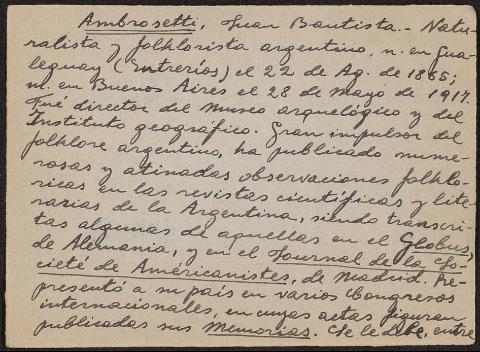 Ambrosetti, Juan Bautista.- Natu-
ralista y folklorista argentino, n. en Gua-
leguay (Entrerios) el 22 de Ag. de 1865;
m. en Buenos Aires el 28 de Mayo de 1917.
Fué director del Museo arquelógico y del
Instituto geográfico. Gran impulsor del
folklore argentino, ha publicado nume-
rosas y atinadas observaciones folkló-
ricas en las revistas científicas y lite-
rarias de la Argentina, siendo transcri-
tas algunas de aquellas en el Globus,
de Alemania, y en el Journal de la So-
cieté de Américanistes, de Madrid. Re-
presentó a su país en varios Congresos
internacionales, en cuyas actas figuran
publicadas sus Memorias. Se le debe, entre